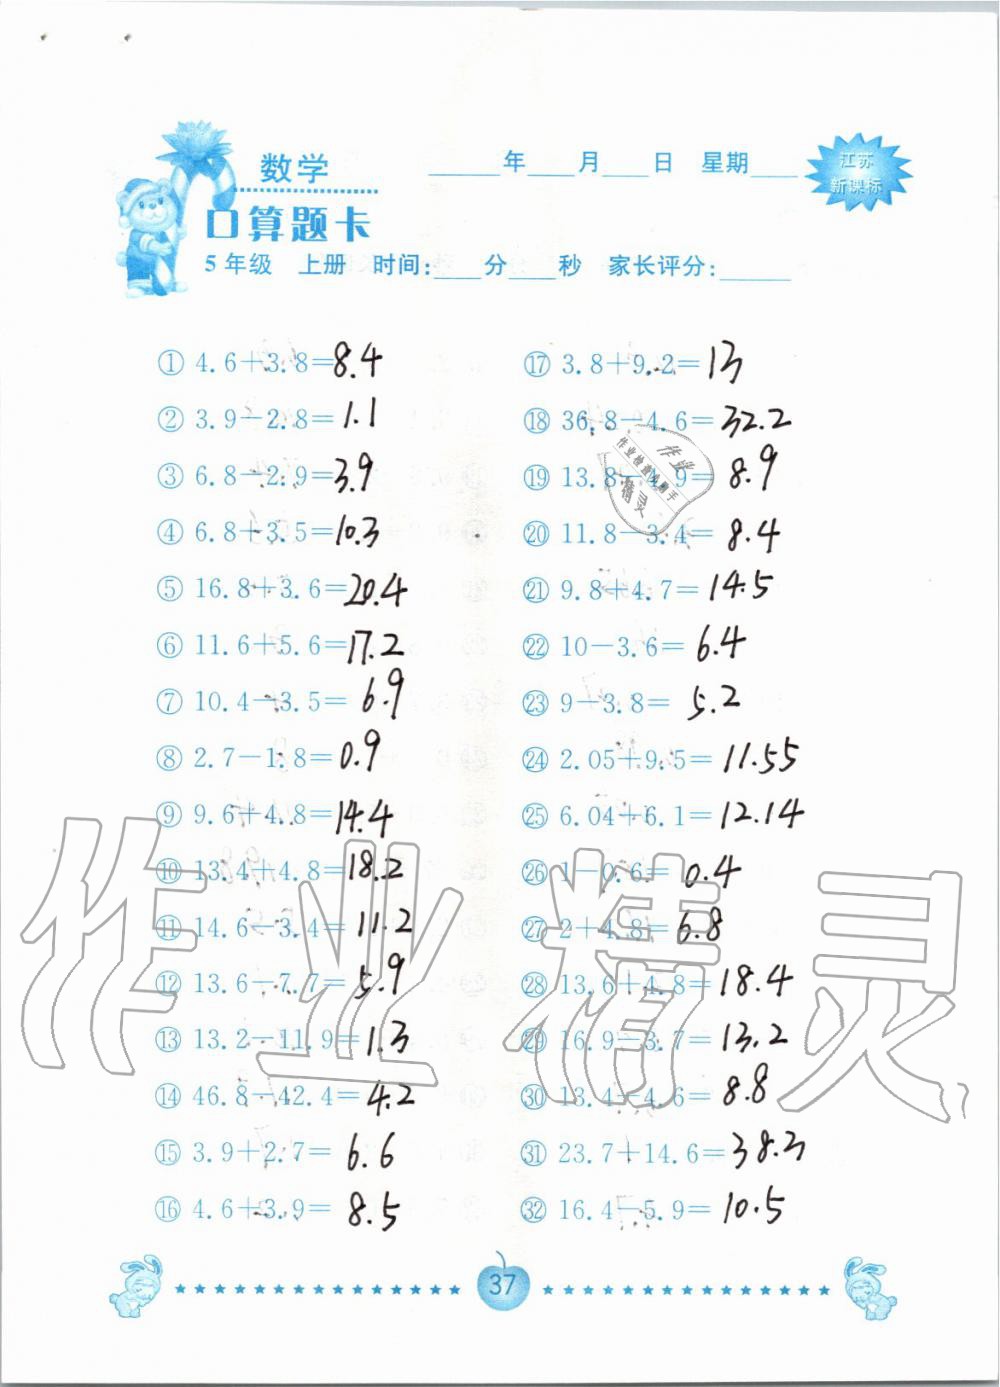 数学
____年____月____日 星期____
江苏
新课标
口算题卡
5年级 上册 时间:____分____秒 家长评分:____
① 4.6+3.8=8.4
② 3.9-2.8=1.1
③ 6.8-2.9=3.9
④ 6.8+3.5=10.3
⑤ 16.8+3.6=20.4
⑥ 11.6+5.6=17.2
⑦ 10.4-3.5=6.9
⑧ 2.7-1.8=0.9
⑨ 9.6+4.8=14.4
⑩ 13.4+4.8=18.2
⑪ 14.6-3.4=11.2
⑫ 13.6-7.7=5.9
⑬ 13.2-11.9=1.3
⑭ 46.8-42.4=4.2
⑮ 3.9+2.7=6.6
⑯ 4.6+3.9=8.5
⑰ 3.8+9.2=13
⑱ 36.8-4.6=32.2
⑲ 13.8-4.9=8.9
⑳ 11.8-3.4=8.4
㉑ 9.8+4.7=14.5
㉒ 10-3.6=6.4
㉓ 9-3.8=5.2
㉔ 2.05+9.5=11.55
㉕ 6.04+6.1=12.14
㉖ 1-0.6=0.4
㉗ 2+4.8=6.8
㉘ 13.6+4.8=18.4
㉙ 16.9-3.7=13.2
㉚ 13.4-4.6=8.8
㉛ 23.7+14.6=38.3
㉜ 16.4-5.9=10.5
作业
作业检查小助手
精灵
作业精灵
37